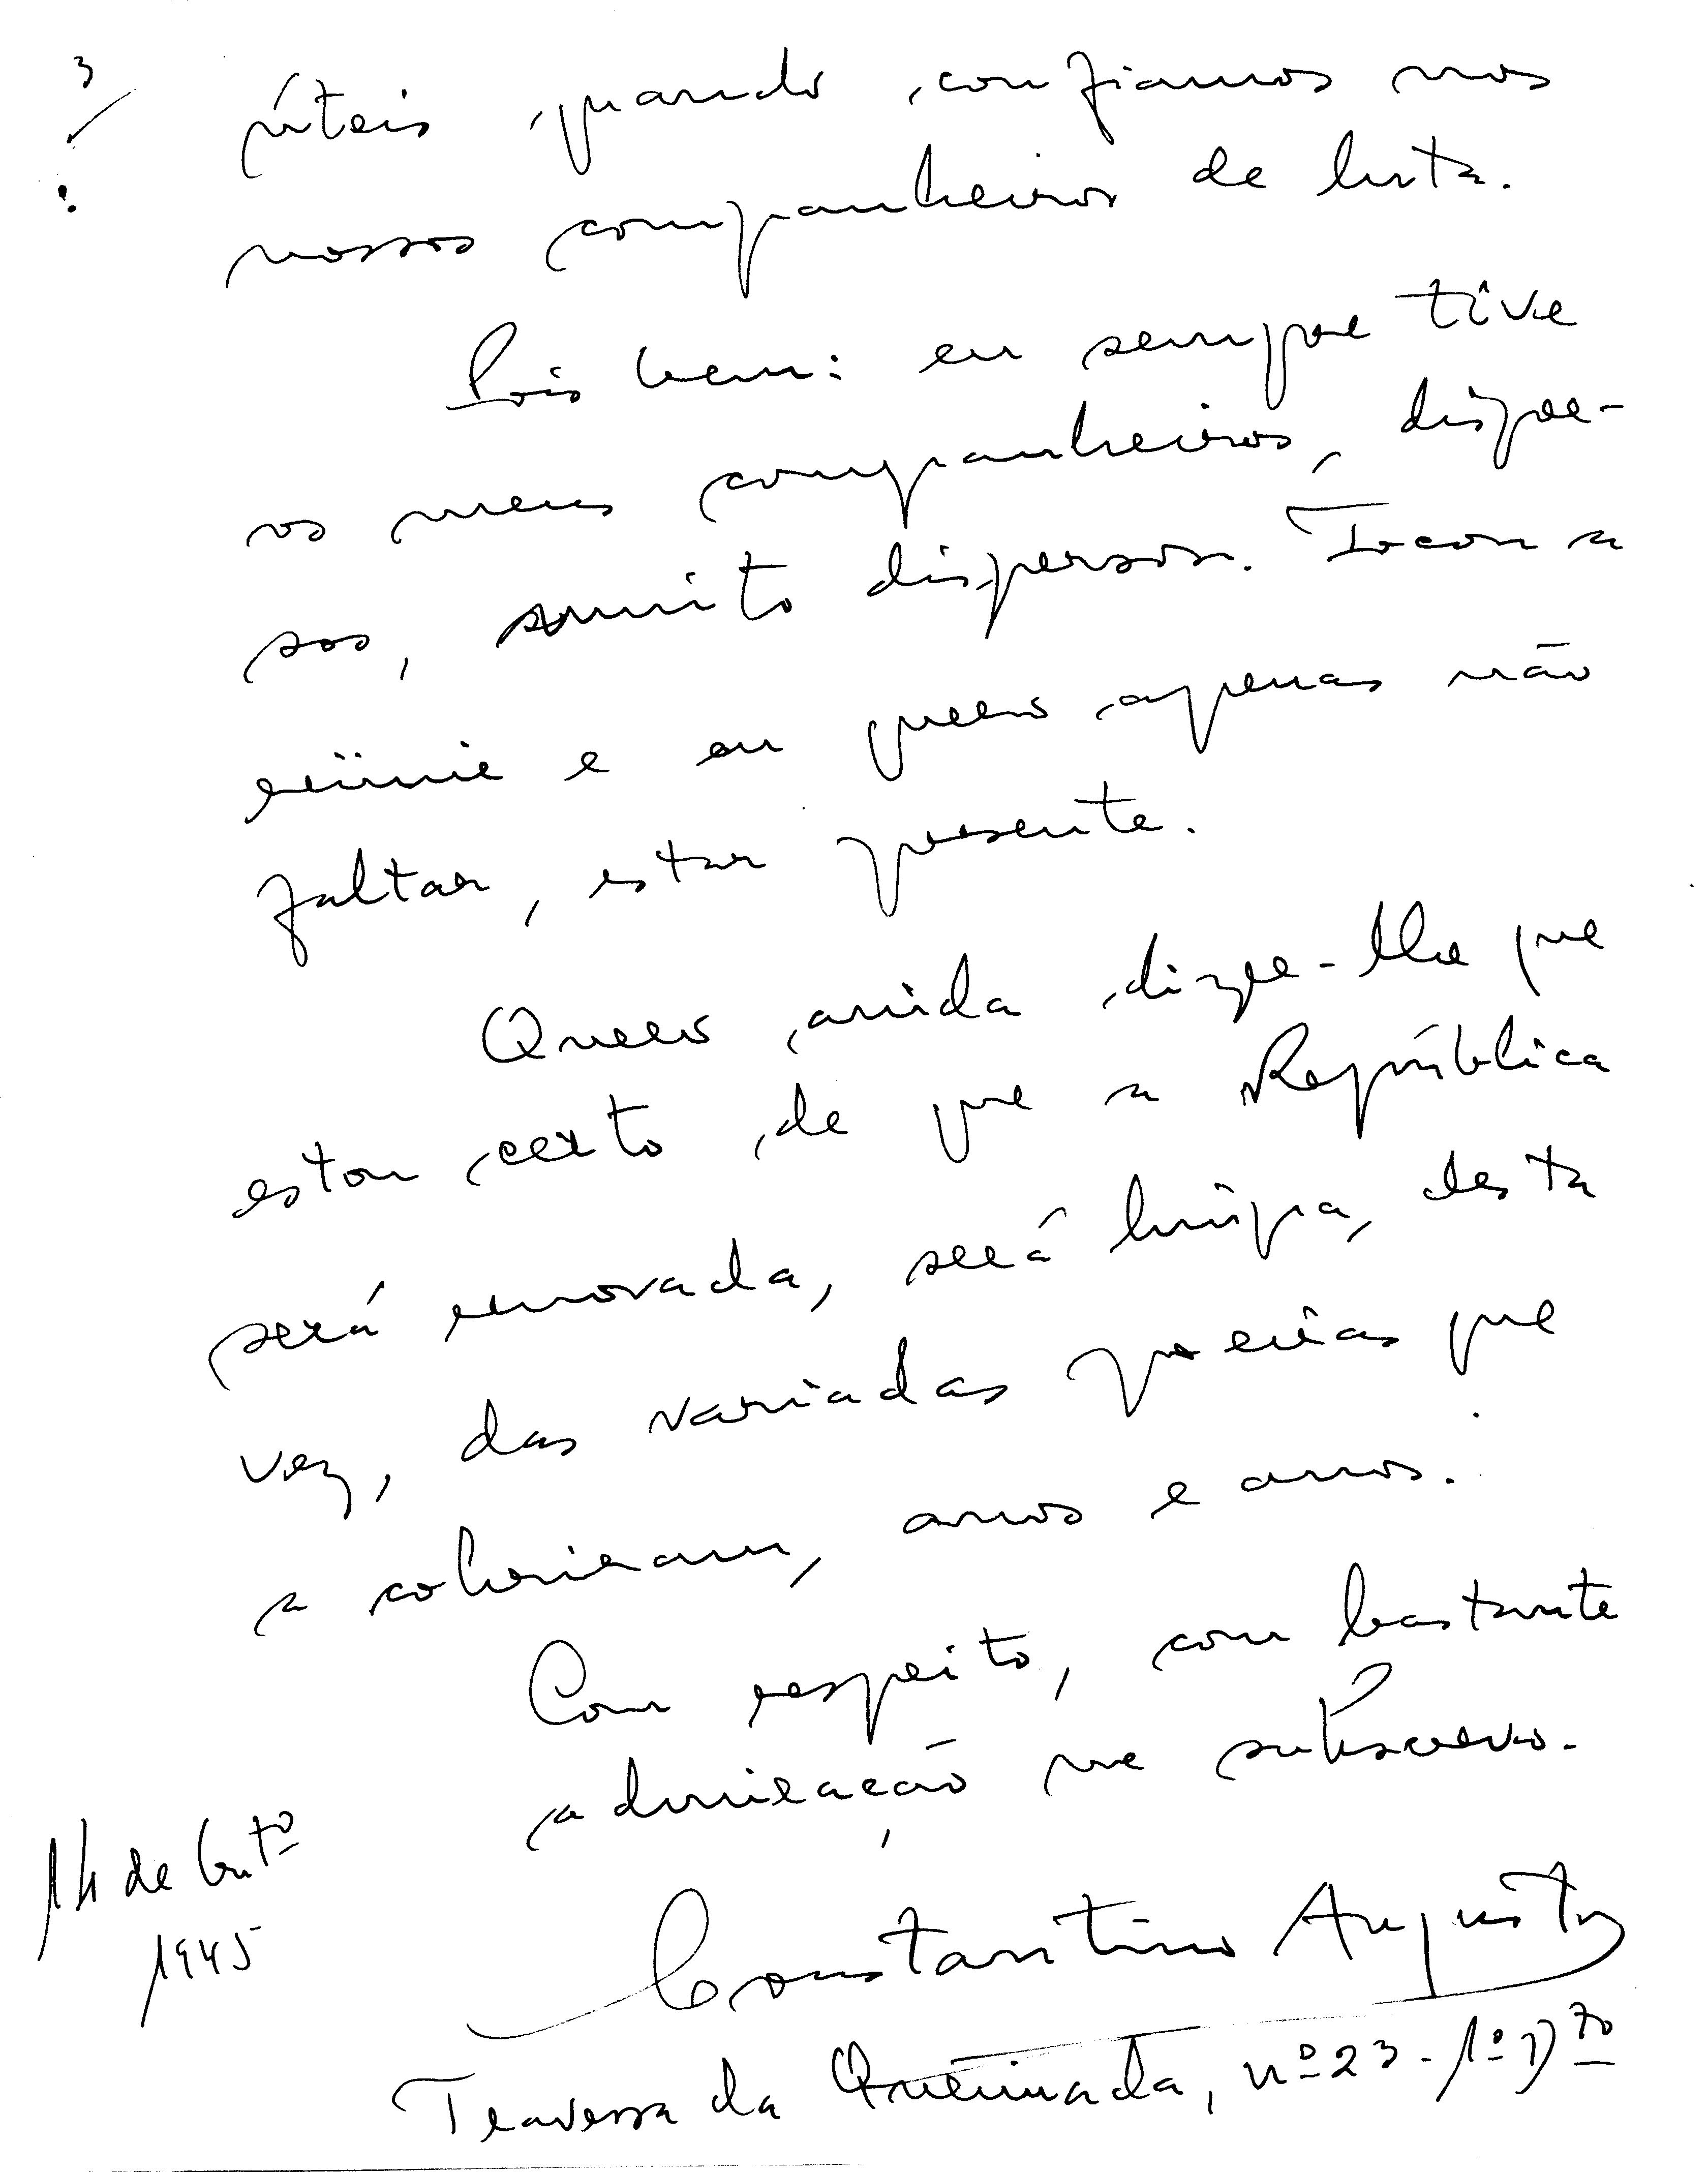 3
úteis quando confiamos nos
nossos companheiros de luta.
Pois bem: eu sempre tive
os meus companheiros, disper-
sos, muito dispersos. Tocou a
reünir e eu quero apenas não
faltar, estar presente.
Quero ainda dizer-lhe que
estou certo de que a República
será renovada, será limpa, desta
vez, das variadas poeiras que
a cobriram, anos e anos.
Com respeito, com bastante
admiração me subscrevo.
14 de Outº
1945
Constantino Augusto
Travessa da Queimada, nº 23 - 1º Dto